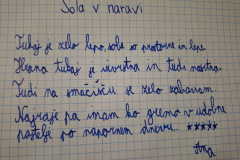 Šola v naravi
Tukaj je zelo lepo, sobe so prostorne in lepe.
Hrana tukaj je izvrstna in tudi mastna.
Tudi na smučišču se zelo zabavam.
Najraje pa imam ko gremo v udobne
postelje po napornem dnevu... *****
Ana